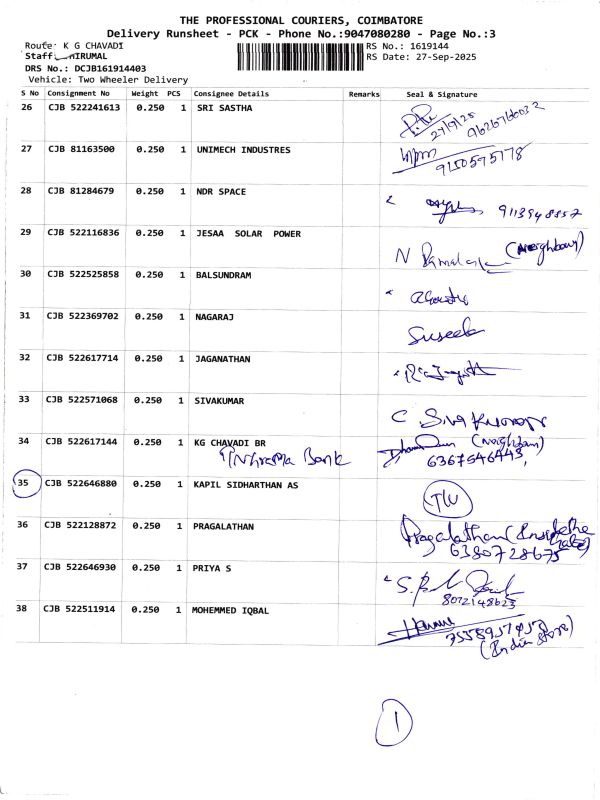 THE PROFESSIONAL COURIERS, COIMBATORE
Delivery Runsheet - PCK - Phone No.:9047080280 - Page No.:3
Route: K G CHAVADI RS No.: 1619144
Staff: NIRUMAL RS Date: 27-Sep-2025
DRS No.: DCJB161914403
Vehicle: Two Wheeler Delivery
S No Consignment No Weight PCS Consignee Details Remarks Seal & Signature
26 CJB 522241613 0.250 1 SRI SASTHA
27/9/25
27 CJB 81163500 0.250 1 UNIMECH INDUSTRES
9150595778
28 CJB 81284679 0.250 1 NDR SPACE
29 CJB 522116836 0.250 1 JESAA SOLAR POWER
N (Neighbour)
30 CJB 522525858 0.250 1 BALSUNDRAM
31 CJB 522369702 0.250 1 NAGARAJ
Suseela
32 CJB 522617714 0.250 1 JAGANATHAN
33 CJB 522571068 0.250 1 SIVAKUMAR
C Sivakumar
34 CJB 522617144 0.250 1 KG CHAVADI BR
Bank (Neighbour)
6367546443,
35 CJB 522646880 0.250 1 KAPIL SIDHARTHAN AS
36 CJB 522128872 0.250 1 PRAGALATHAN
Pragalathan
6380728675
37 CJB 522646930 0.250 1 PRIYA S
8072148623
38 CJB 522511914 0.250 1 MOHEMMED IQBAL
(India Store)
1